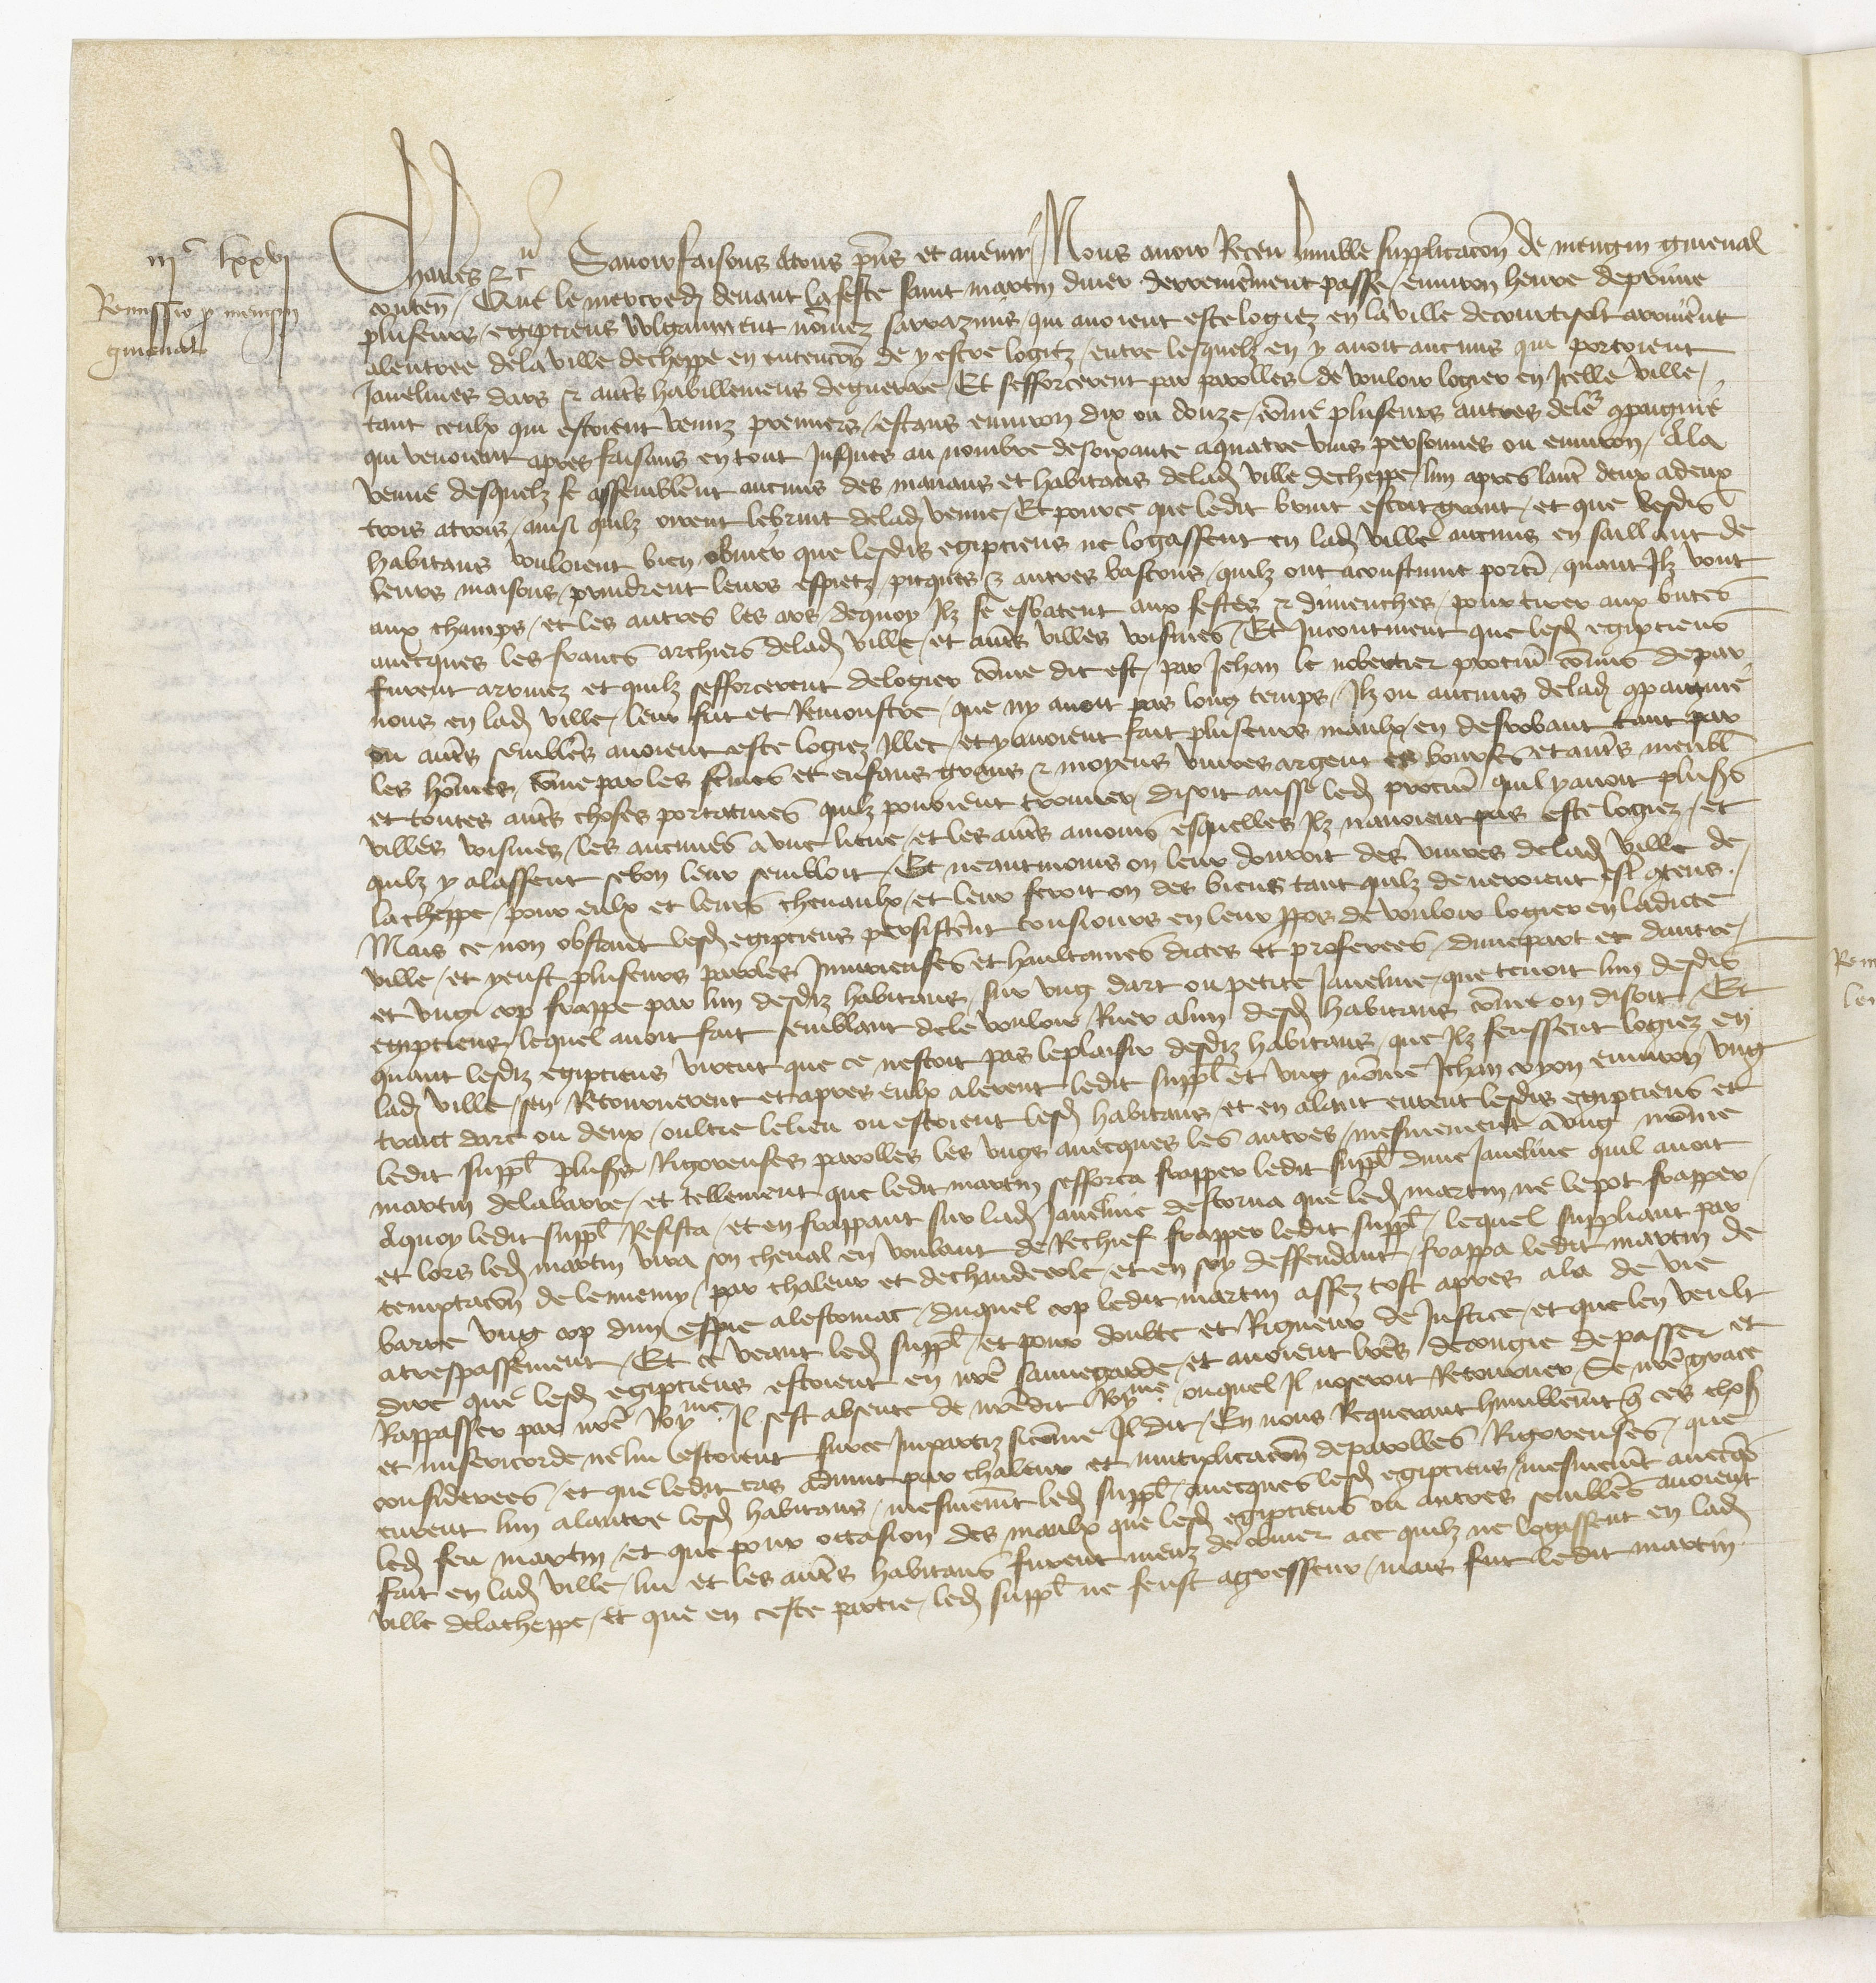 iijc lxxvj
Remissio p mengin
guienal
Charles &c Savoir faisons atous pns et avenir Nous avoir Receu humble supplicacon de mengin guienal
conten / Que le mercredj devant la feste saint martin diver derrenierement passe / environ heure de prime
pluseurs egipciens vulgaument nommez sarrazins / qui avoient este logiez en la ville de courtisolt arriverent
alentree dela ville decheppe en entencon de y estre logiez / entre lesquelz en y avoit aucuns qui portoient
Javelines dars & autres habillemens deguerre / Et sefforcerent par parolles de vouloir logier en Icelle ville /
tant ceulx qui estoient venuz premiers / estans environ dix ou douze / come pluseurs autres deleur compaignie
qui venoient apres faisans en tout Jusques au nombre desoixante aquatre vins personnes ou environ / Ala
venue desquelz se assemblerent aucuns des manans et habitans delad ville decheppe / lun apres lautre deux adeux
trois atrois / ainsi quilz oirent lebruit delad venue / Et pource que ledit bruit estoit grant / et que lesdis
habitans vouloient bien obvier que lesdis egipciens ne logassent en lad ville aucuns en saillant de
leurs maisons / prindrent leurs espietz / picques & autres bastons / quilz ont acoustume porter / quant Ilz vont
aux champs / et les autres les ars / dequoy Ilz se esbatent aux festes & dimenches / pour tirer aux butes
avecques les francs archiers delad ville / et autres villes voisines / Et Incontinent que lesd egipciens
furent arrivez et quilz sefforcerent delogier come dit est / par Jehan le procureur commis depar
nous en lad ville / leur fut et Remonstre / que ny avoit pas long temps / Ilz ou aucuns delad compaignie
ou autres semblables avoient este logiez Illec / et y avoient fait pluseurs maulx / en desrobant tant par
les hommes / come par les femmes et enfans grans & moyens vivres argent es bourses et autres meubles
et toutes autres choses portatives quilz pouoient trouver / disoit aussi led procureur quil y avoit pluseurs
villes voisines / les aucunes a une lieue / et les autres amoins esquelles Ilz navoient pas este logiez / et
quilz y alassent se bon leur sembloit / Et neantmoins on leur donroit des vivres delad ville de
la cheppe / pour eulx et leurs chevaulx / et leur feroit on des biens tant quilz devroient estre contens.
Mais ce non obstant lesd egipciens persisterent tousjours en leur propos de vouloir logier en ladicte
ville / et y eust pluseurs paroles Injurieuses et haultaines dictes et proferees / dune part et dautre /
et ung cop frappe par lun desdiz habitans / sur ung dart ou petite Javeline / que tenoit lun desdis
egipciens / lequel avoit fait semblant dele vouloir Ruer alun desd habitans come on disoit / Et
quant lesdiz egipciens virent que ce nestoit pas leplaisir desdiz habitans / que Ilz feussent logiez en
lad ville / sen Retournerent et apres eulx alerent ledit suppl et ung nomme Jehan coyon environ ung
traict darc ou deux / oultre lelieu ou estoient lesd habitans / et en alant eurent lesdis egipciens et
ledit suppl pluseurs Rigoreuses parolles les ungs avecques les autres / mesmement a ung nomme
martin delabarre / et tellement que ledit martin sefforca frapper ledit suppl dune Javeline quil avoit
Aquoy ledit suppl Resista / et en frappant sur lad Javeline destorna que led martin ne le pot frapper /
et lors led martin vira son cheval en voulant de Rechief frapper ledit suppl / lequel suppliant par
temptacon de lennemy / par chaleur et dechaudecole / et en soy deffendant / frappa ledit martin de
barre ung cop dun espie alestomac / duquel cop ledit martin assez tost apres ala de vie
atrespassement / Et ce veant led suppl / et pour doubte et Rigueur de Justice / et que len veult
dire que lesd egipciens estoient en nre sauvegarde / et avoient lres decongie depasser et
Rappasser par nre Royme. Il sest absente de nredit Royme. ouquel Il noseroit Retourner / Se nre grace
et misericorde ne lui estoient surce Imparties sicome Il dit / En nous Requerant humblemt que ces choses
considerees / et que ledit cas advint par chaleur et mutiplicacon deparolles Rigoreuses / que
eurent lun alautre lesd habitans / mesmement led suppl / avecques lesd egipciens / mesmement avecques
led feu martin / et que pour occasion des maulx que lesd egipciens ou autres semblables avoient
fait en lad ville / lui et les autres habitans furent meuz de obvier ace quilz ne logassent en lad
ville delacheppe / et que en ceste partie / led suppl ne feust agresseur / mais fut ledit martin